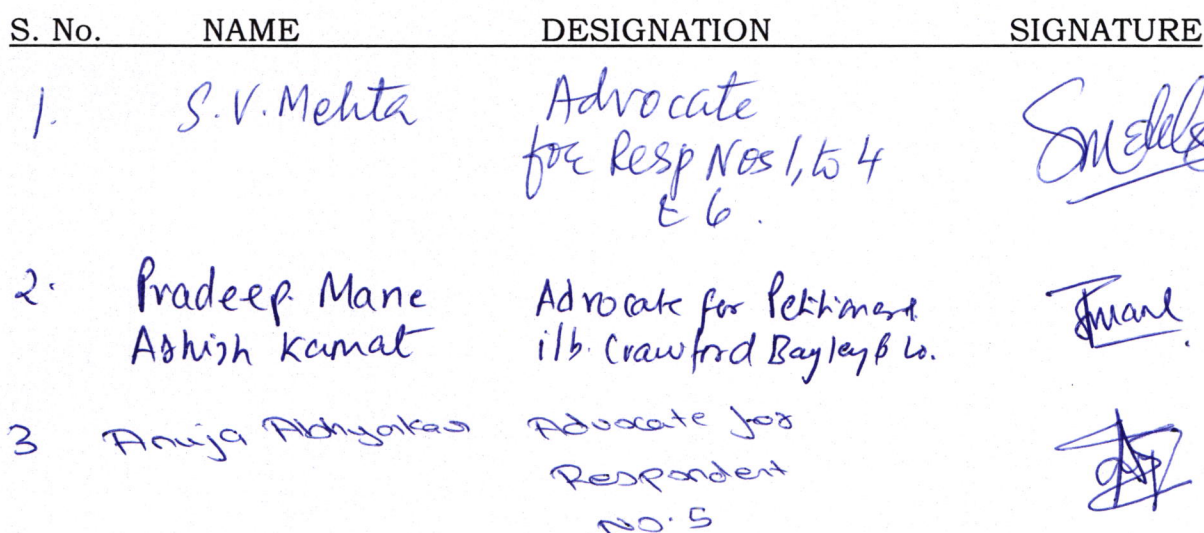 S. No. NAME DESIGNATION SIGNATURE
1. S.V. Mehta Advocate
for Resp Nos 1, to 4
& 6.
2. Pradeep Mane Advocate for Petitioners
Ashish Kamat i/b. Crawford Bayley & Co.
3 Anuja Advocate for
Respondent
NO. 5